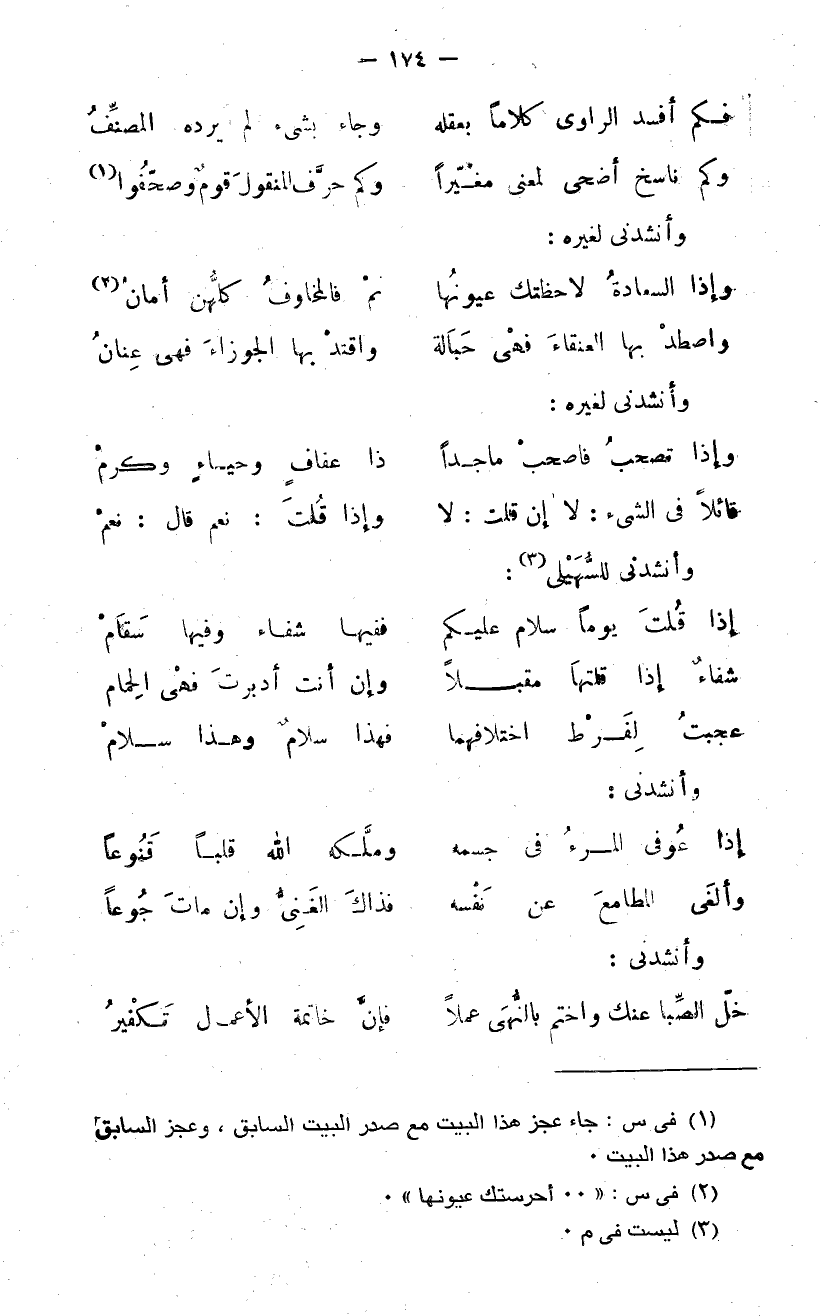 — ١٧٤ —
فكم أفسد الراوى كلاماً بعقله وجاء بشىء لم يرده المصنِّفُ
وكم ناسخ أضحى لمعنى مغيّراً وكم حرَّف المنقولَ قومٌ وصحّفُوا (١)
وأنشدنى لغيره :
وإذا السعادةُ لاحظتك عيونُها نمْ فالمخاوفُ كلهُّن أمانُ (٢)
واصطدْ بها العنقاءَ فهْى حَبَالة واقتدْ بها الجوزاءَ فهى عِنانُ
وأنشدنى لغيره :
وإذا تصحبُ فاصحبْ ماجداً ذا عفافٍ وحياءٍ وكرمْ
قائلاً فى الشىء : لا إن قلت : لا وإذا قُلتَ : نعم قال : نعمْ
وأنشدنى للسُّهَيْلى (٣) :
إذا قُلتَ يوماً سلام عليكم ففيها شفاء وفيها سَقَامْ
شفاءٌ إذا قلتها مقبلاً وإن أنت أدبرتَ فهْى الحِمام
عجبتُ لِفَرْط اختلافهما فهذا سلامٌ وهذا سلامْ
وأنشدنى :
إذا عُوفى المرءُ فى جسمه وملَّكه الله قلباً قَنُوعاً
وألغَى المطامعَ عن نَفْسه فذاكَ الغَنِىُّ وإن ماتَ جُوعاً
وأنشدنى :
خلّ الصِّبا عنك واختم بالنُّهَى عملاً فإنَّ خاتمة الأعمل تَكفْيرُ
(١) فى س : جاء عجز هذا البيت مع صدر البيت السابق ، وعجز السابق
مع صدر هذا البيت ٠
(٢) فى س : « ٠٠ أحرستك عيونها » ٠
(٣) ليست فى م ٠